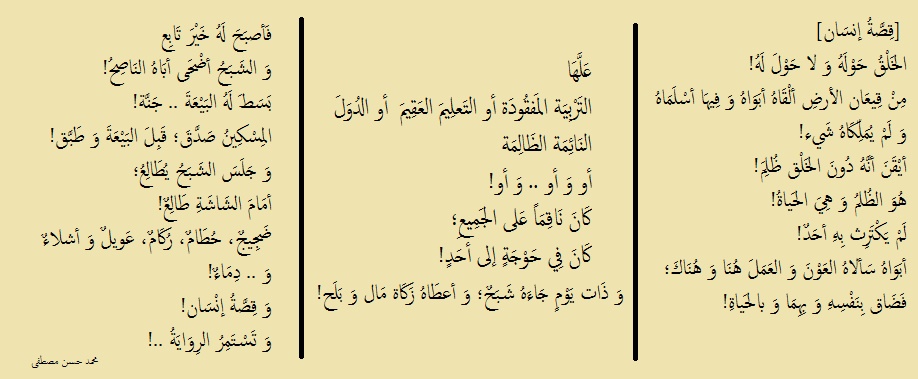 [قِصَّةُ إنسَان]
الخَلْقُ حَوْلَهُ وَ لا حَوْلَ لَهُ!
مِنْ قِيعَانِ الأرضِ ألْقَاهُ أبَوَاهُ وَ فِيهَا أسْلَمَاهُ
وَ لَمْ يُمَلِّكَاهُ شَيء!
أيْقَنَ أنَّهُ دُونَ الخَلْق ظُلِمَ!
هُوَ الظُلمُ وَ هِيَ الحَياةُ!
لَمْ يَكْتَرِث بِهِ أحَدٌ!
أبَوَاهُ سَألاهُ العَوْنَ وَ العَمَلَ هُنَا وَ هُنَاكَ؛
فَضَاق بِنَفْسِهِ وَ بِهِمَا وَ بالحَياةِ!
عَلَّهَا
التَرْبِيَة المَفقُودَة أو التَعلِيمَ العَقِيمَ أو الدُوَلَ
النَائِمَة الظَالِمَة
أو وَ أو .. وَ أو!
كَانَ نَاقِمَاً عَلى الجَمِيعِ؛
كَانَ فِي حَوْجَةٍ إلى أحَدٍ!
وَ ذَات يَوْمٍ جَاءَهُ شَبَحٌ؛ وَ أعطَاهُ زَكَاة مَال وَ بَلَح!
فَأصبَحَ لَهُ خَيْرَ تَابِع
وَ الشَبَحُ أضْحَى أبَاهُ النَاصِحُ!
بَسَطَ لَهُ البَيْعَةَ .. جَنَّة!
المِسْكِينُ صَدَّقَ؛ قَبِلَ البَيْعَةَ وَ طَبَّق!
وَ جَلَسَ الشَبَحُ يُطَالِعُ؛
أمَامَ الشَاشَةِ طَالِعٌ!
ضَجِيجٌ، حُطَامٌ، رُكَامٌ، عَويلٌ وَ أشلاءٌ
وَ .. دِمَاءٌ!
وَ قِصَّةُ إنْسَان!
وَ تَسْتَمِرُ الرِوَايَةُ ..!
محمد حسن مصطفى